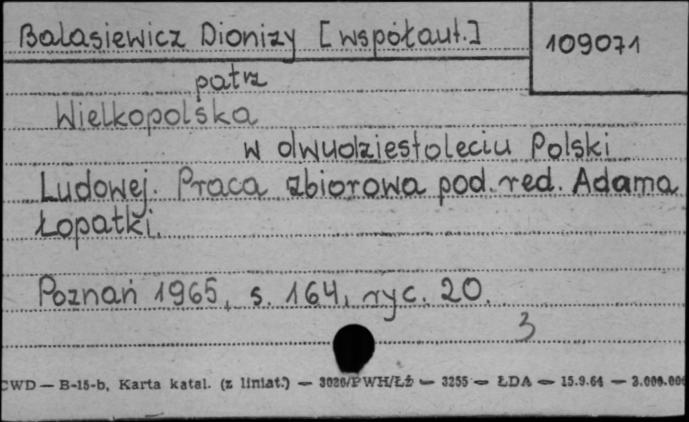 Balasiewicz Dionizy [współaut.]
109071
patrz
Wielkopolska
w dwudziestoleciu Polski
Ludowej. Praca zbiorowa pod. red. Adama
Łopatki.
Poznań 1965, s. 164, ryc. 20.
3
CWD — B-15-b, Karta katal. (z liniat.) — 3020/PWH/ŁŹ — 3255 — ŁDA — 15.9.64 — 3.000.000